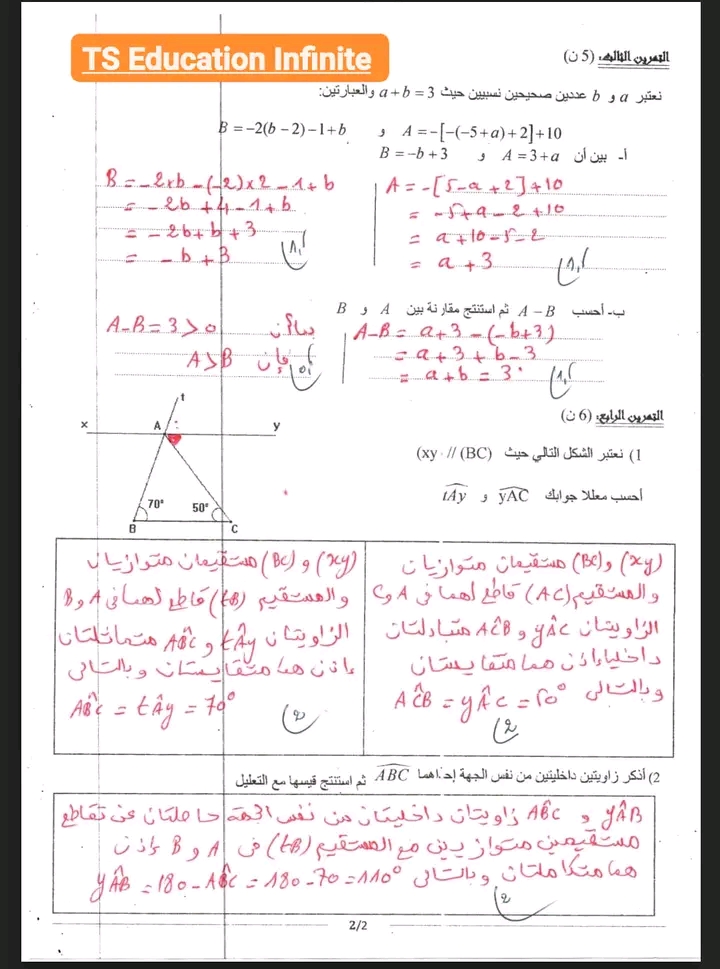 TS Education Infinite
التمرين الثالث: (5 ن)
نعتبر a و b عددين صحيحين نسبيين حيث a+b=3 والعبارتين:
A=-[-(-5+a)+2]+10 و B=-2(b-2)-1+b
أ- بين أن A=3+a و B=-b+3
A = -[5-a+2]+10
= -5+a-2+10
= a+10-5-2
= a+3
B = -2×b-(-2)×2-1+b
= -2b+4-1+b
= -2b+b+3
= -b+3
ب- أحسب A-B ثم استنتج مقارنة بين A و B
A-B = a+3-(-b+3)
= a+3+b-3
= a+b = 3
بما أن A-B = 3 > 0
فإن A>B
التمرين الرابع: (6 ن)
1) نعتبر الشكل التالي حيث (xy) // (BC)
أحسب معللا جوابك yAC و tAy
t
x A y
70° 50°
B C
(xy) و (BC) مستقيمان متوازيان
والمستقيم (AC) قاطع لهما في A و C
الزاويتان yÂC و AĈB متبادلتان
داخليا إذن هما متقايستان
وبالتالي AĈB = yÂC = 50°
(xy) و (BC) مستقيمان متوازيان
والمستقيم (tB) قاطع لهما في A و B
الزاويتان tÂy و AB̂C متماثلتان
إذن هما متقايستان وبالتالي
AB̂C = tÂy = 70°
2) أذكر زاويتين داخليتين من نفس الجهة إحداهما ABC ثم استنتج قيسها مع التعليل
yÂB و AB̂C زاويتان داخليتان من نفس الجهة حاصلتان عن تقاطع
مستقيمين متوازيين مع المستقيم (tB) في A و B إذن
هما متكاملتان وبالتالي yÂB = 180-AB̂C = 180-70 = 110°
2/2